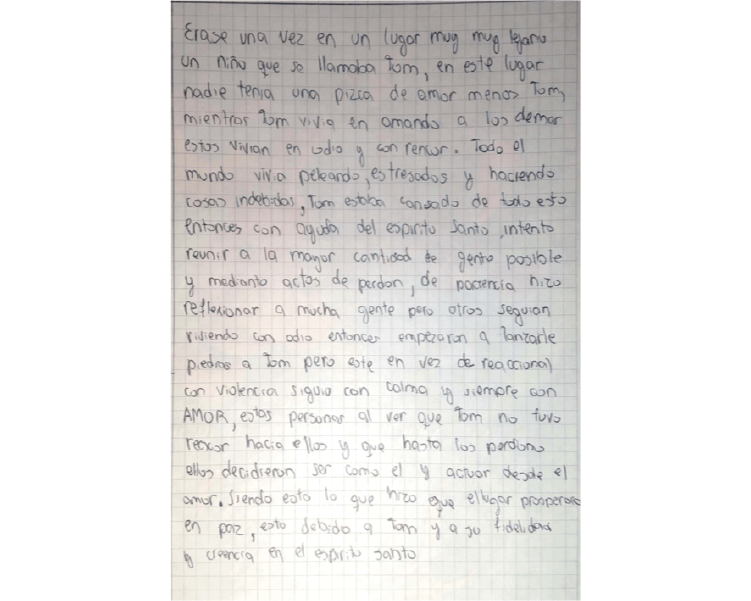 Erase una vez en un lugar muy muy lejano
un niño que se llamaba Tom, en este lugar
nadie tenia una pizca de amor menos Tom,
mientras Tom vivia en amando a los demas
estos vivian en odio y con rencor. Todo el
mundo vivia peleando, estresados y haciendo
cosas indebidas, Tom estaba cansado de todo esto
entonces con ayuda del espiritu santo, intento
reunir a la mayor cantidad de gente posible
y mediante actos de perdon, de paciencia hizo
reflexionar a mucha gente pero otros seguian
viviendo con odio entonces empezaron a lanzarle
piedras a Tom pero este en vez de reaccional
con violencia siguio con calma y siempre con
AMOR, estas personas al ver que Tom no tuvo
rencor hacia ellos y que hasta los perdono
ellos decidieron ser como el y actuar desde el
amor. Siendo esto lo que hizo que el lugar prosperase
en paz, esto debido a Tom y a su fidelidad
y creencia en el espiritu santo